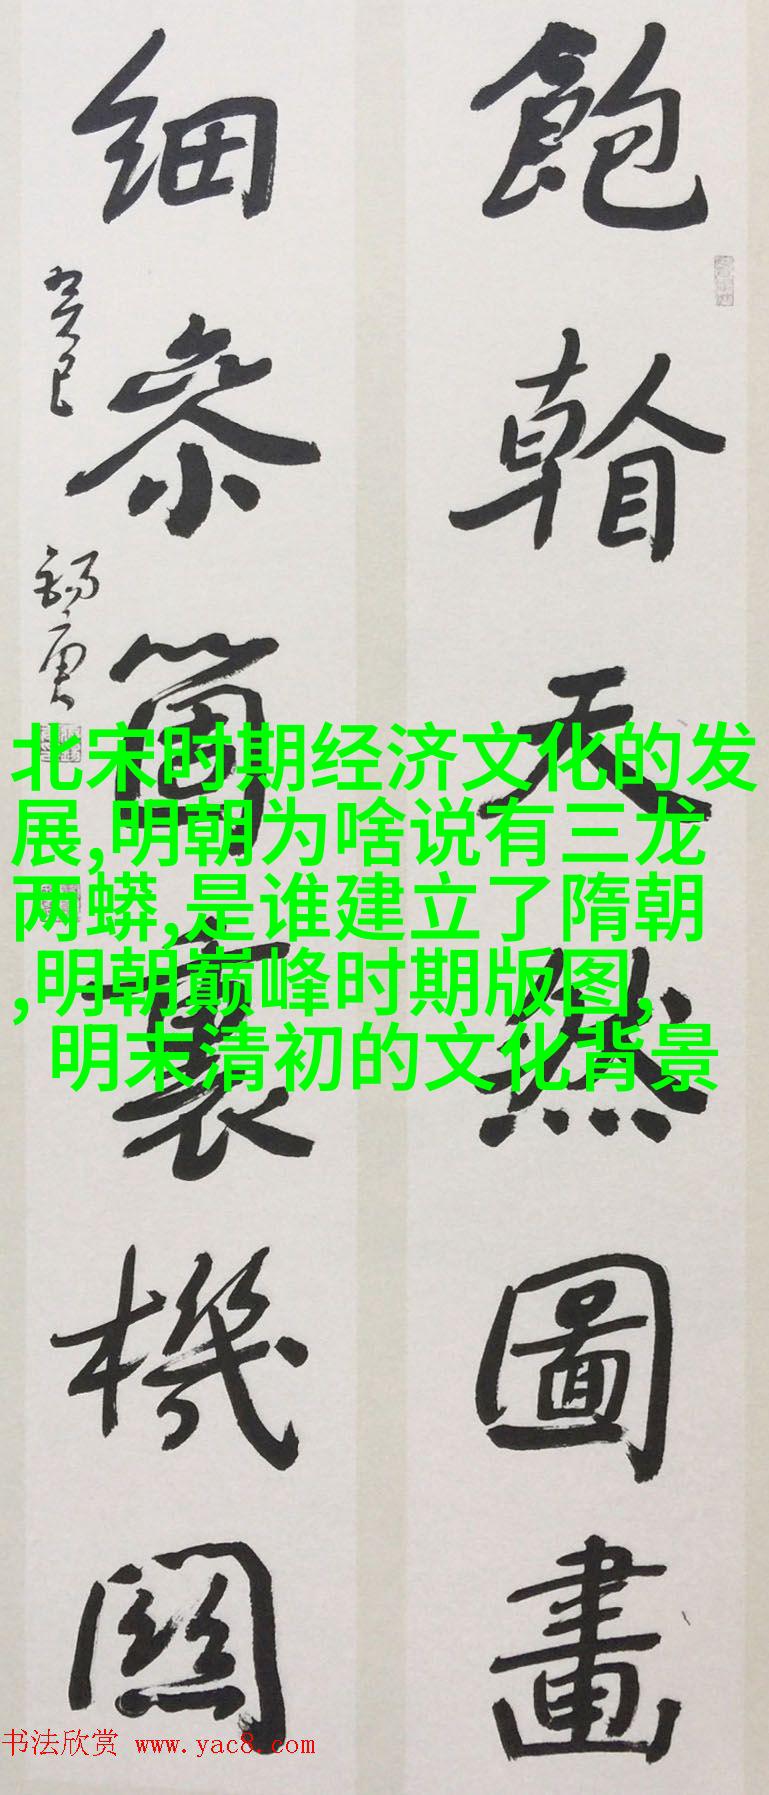 飽看天然圖畫
細參箇裏機關
癸巳
錫庚
北宋时期经济文化的发
展,明朝为啥说有三龙
两蟒,是谁建立了隋朝
,明朝巅峰时期版图,
明末清初的文化背景
书法欣赏 www.yac8.com